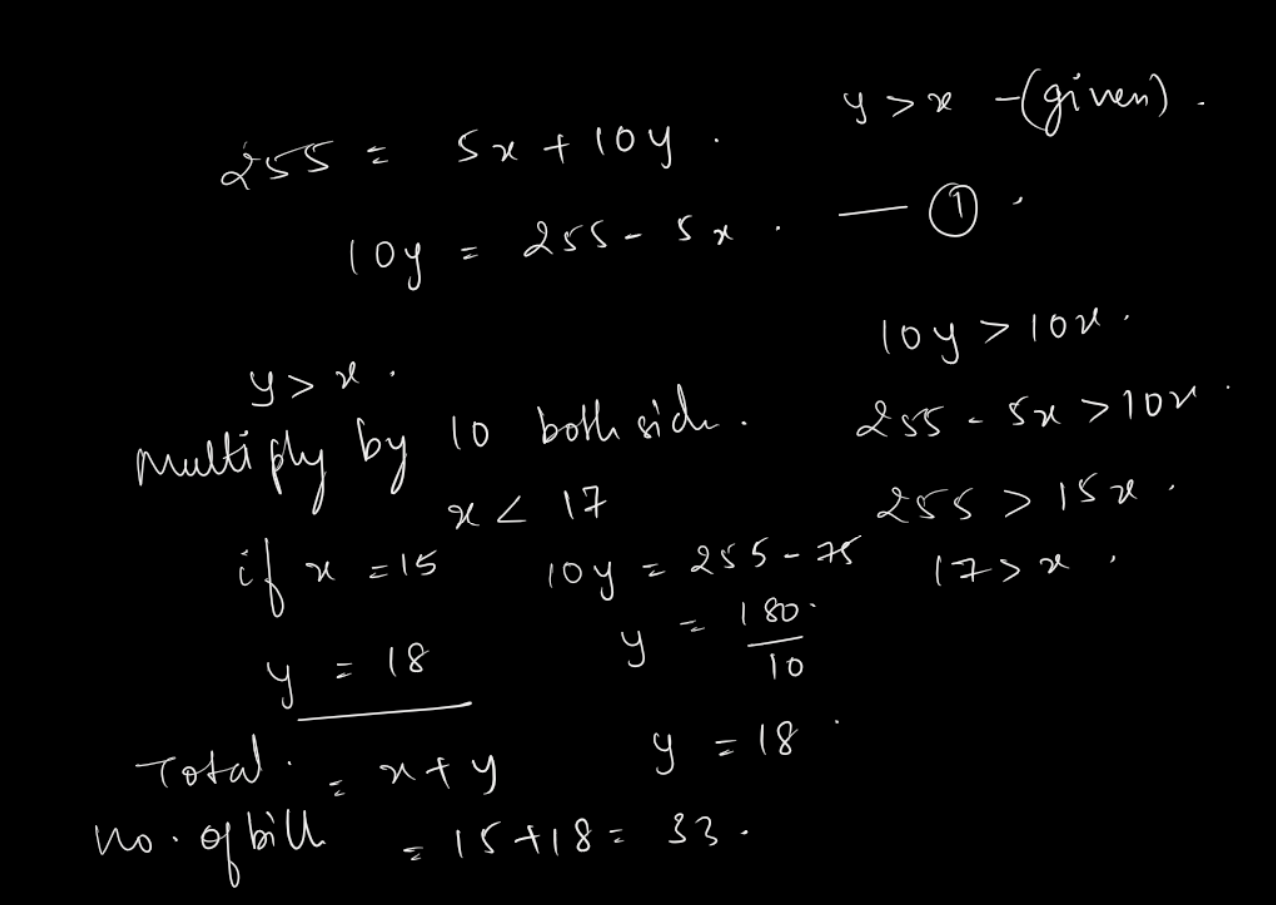 y > x - (given).
255 = 5x + 10y.
10y = 255 - 5x. — ①.
10y > 10x.
y > x.
Multiply by 10 both side.
255 - 5x > 10x.
x < 17
255 > 15x.
if x = 15
10y = 255 - 75
17 > x.
y = 180/10
y = 18
y = 18.
Total. = x + y
no. of bill = 15 + 18 = 33.